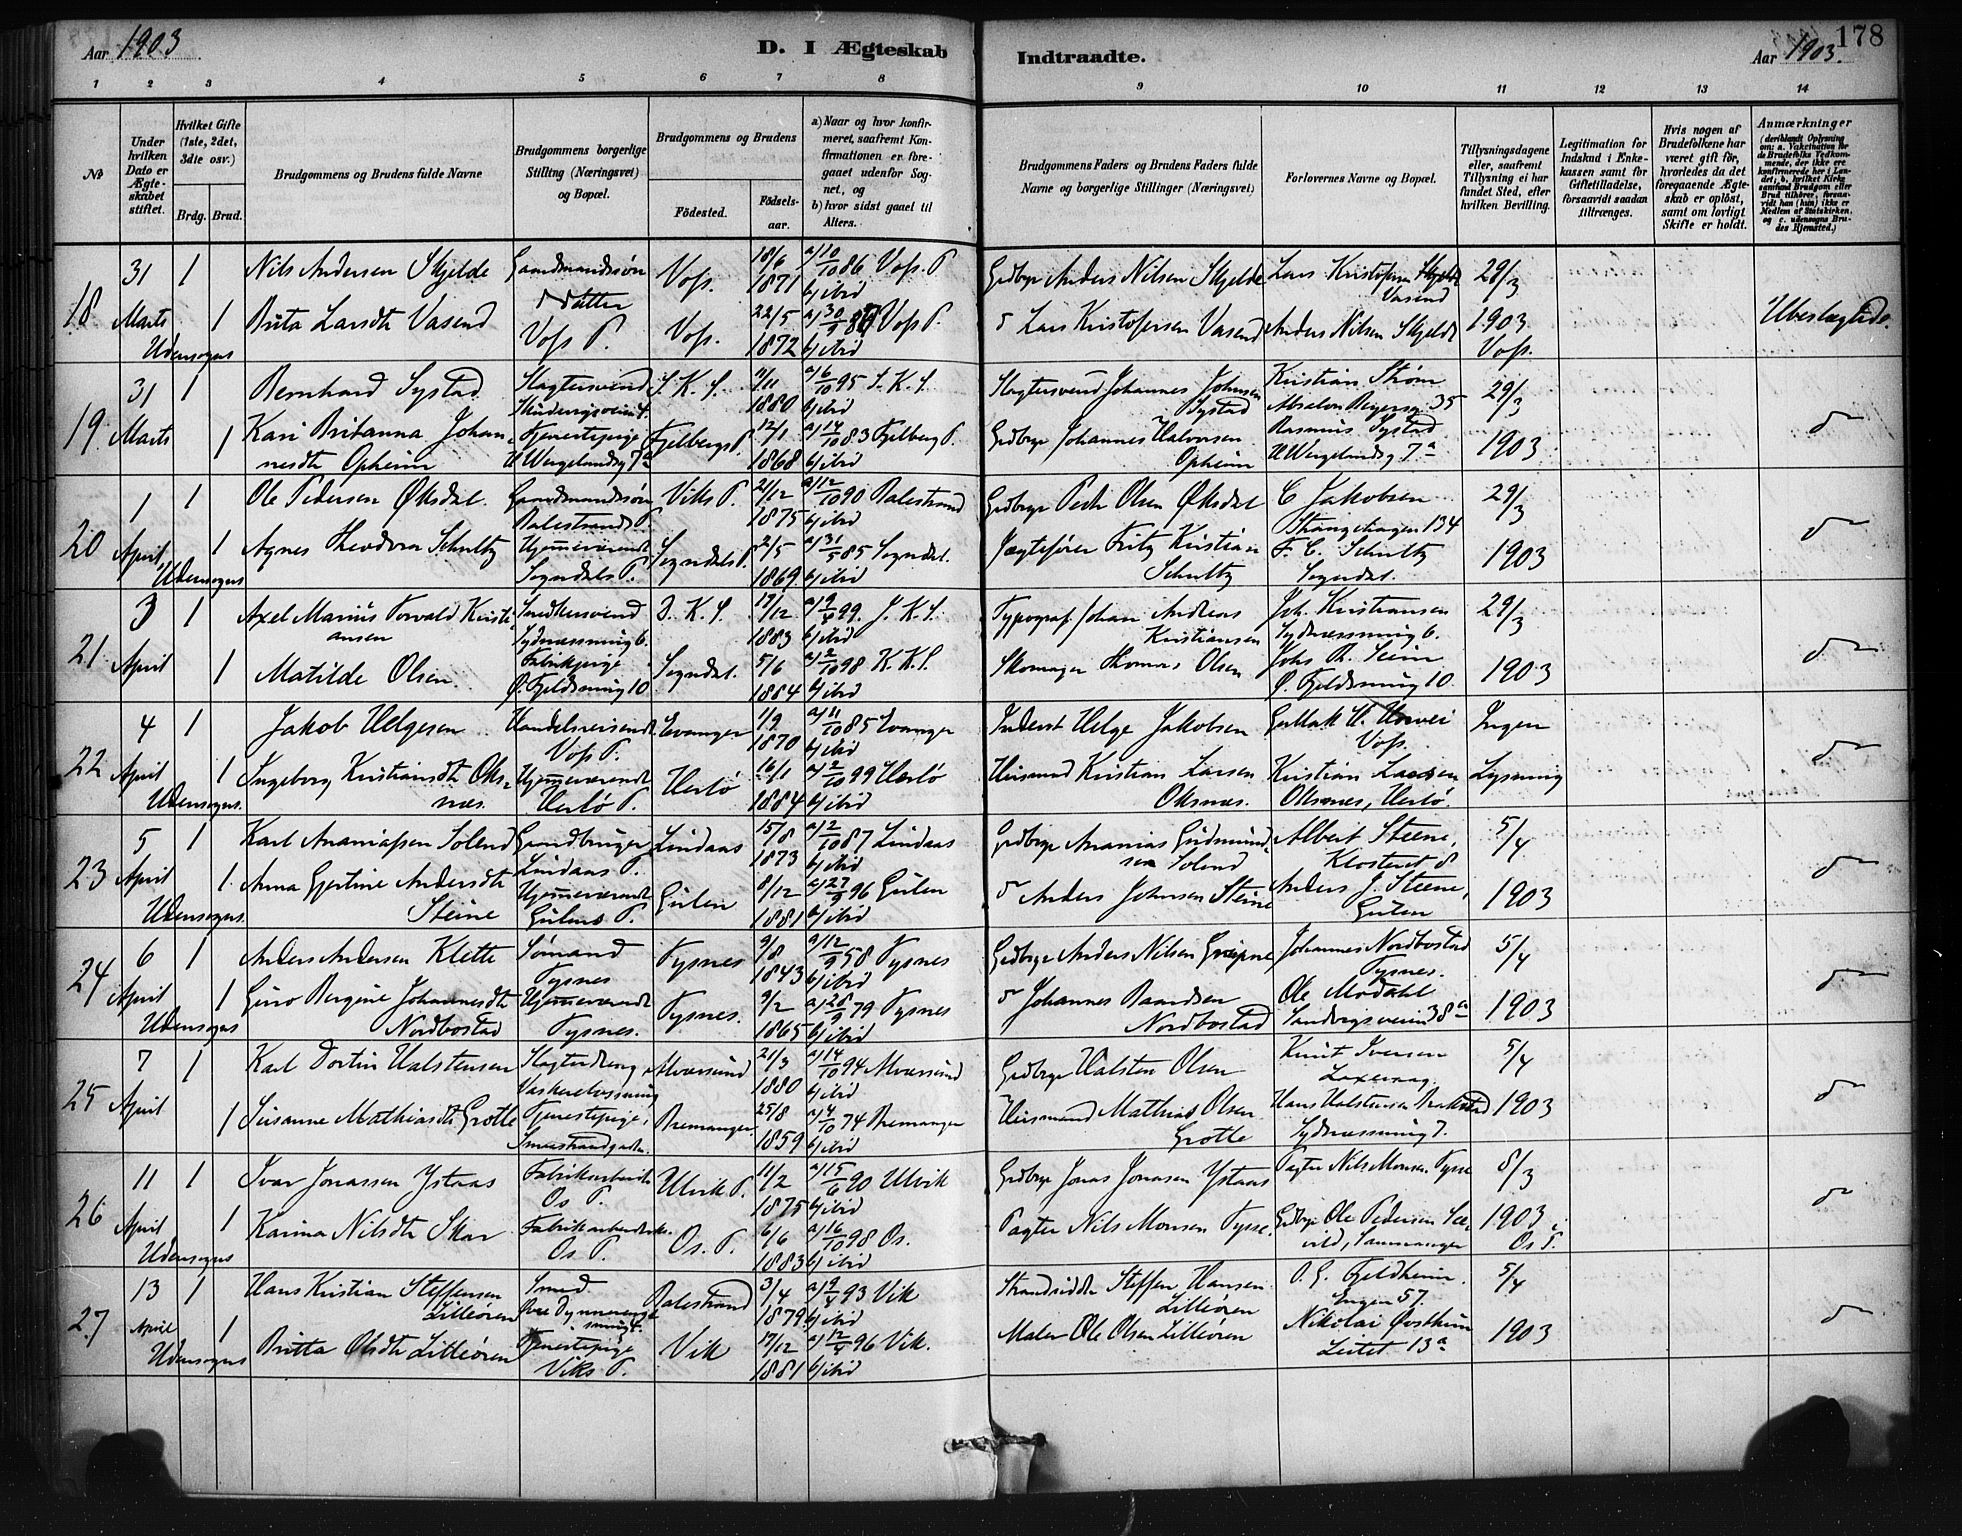 Aar 1903
D. I Ægteskab Indtraadte.
178
Aar 1903.
1 2 3 4 5 6 7 8 9 10 11 12 13 14
No
Under hvilken Dato er Ægteskabet stiftet.
Hvilket Gifte (1ste, 2det, 3die osv.)
Brdg. Brud.
Brudgommens og Brudens fulde Navne
Brudgommens borgerlige Stilling (Næringsvei) og Bopæl.
Brudgommens og Brudens
Fødested. Fødselsaar.
a) Naar og hvor konfirmeret, saafremt Konfirmationen er foregaaet udenfor Sognet, og
b) hvor sidst gaaet til Alters.
Brudgommens Faders og Brudens Faders fulde Navne og borgerlige Stillinger (Næringsvei)
Forlovernes Navne og Bopæl.
Tillysningsdagene eller, saafremt Tillysning ei har fundet Sted, efter hvilken Bevilling.
Legitimation for Indskud i Enkekassen samt for Giftetilladelse, forsaavidt saadan tiltrænges.
Hvis nogen af Brudefolkene har været gift før, hvorledes da det foregaaende Ægteskab er opløst, samt om lovligt Skifte er holdt.
Anmærkninger
(deriblandt Oplysning om: a. Vakcination for de Brudefolks Vedkommende, der ikke ere konfirmerede her i Landet; b. hvilket Kirkesamfund Brudgom eller Brud tilhører, forsaavidt han (hun) ikke er Medlem af Statskirken, og c. udensogns Brudes Hjemsted.)
18 31 Marts Udensogns 1 Nils Andersen Skjelde Gaardmandssøn Voss. 18/6 1871 a) 10/10 86 Voss P. b) ibid Grdbrgr Anders Nilsen Skjelde Lars Kristofersen Vasend 29/3
1 Brita Larsdtr Vasend Datter Voss P. Voss. 22/5 1872 b) ibid Lars Kristofersen Vasend Anders Nilsen Skjelde 1903 Voss. Ubeslægtede.
19 31 Marts 1 Bernhard Systad Slagtersvend S. K. S. 1880 a) 6/10 95 S. K. S. b) ibid Slagtersvend Johannes Johnsen Systad Kristian Strøm Absalon Beyersg 35 29/3
1 Kari Britanna Johannesdtr Opheim Tjenestepige H Wergelandsg 7a Fjelbergs P. 12/1 1868 a) 14/10 83 Fjelberg P. b) ibid Grdbrgr Johannes Halvorsen Opheim Rasmus Systad H Wergelandsg 7a 1903
20 1 April Udensogns 1 Ole Pedersen Øksdal Gaardmandssøn Balestrands P. Viks P. 21/12 1875 a) 12/10 90 Balestrand b) ibid Grdbrgr Peder Olsen Øksdal C Jakobsen Strangehagen 134 29/3
1 Agnes Theodora Schultz Hjemmeværende Sogndals P. Sogndals P. 2/5 1869 a) 31/5 85 Sogndal. b) ibid Jægtefører Fritz Kristian Schultz F. C. Schultz Sogndal. 1903
21 3 April 1 Axel Marius Torvald Kristiansen Snedkersvend Sydnessmug 6. D. K. S. 17/12 1883 a) 9/4 99. J. K. S. b) ibid Typograf Johan Andreas Kristiansen Joh. Kristiansen Sydnessmug 6. 29/3
1 Matilde Olsen. Fabrikpige Ø. Fjeldsmug 10 Sogndal. 5/6 1884 a) 2/10 98 K. K. S. b) ibid Skomager Thomas Olsen Johs Th. Seim Ø. Fjeldsmug 10. 1903
22 4 April Udensogns. 1 Jakob Helgesen Handelsreisende Voss P. Evanger 1/9 1870 a) 11/10 85 Evanger b) ibid Inderst Helge Jakobsen Voss. Ingen
1 Ingeborg Kristiansdtr Oksnæs. Hjemmeværende Herlø P. Herlø 16/1 1884 a) 2/10 99 Herlø b) ibid Husmand Kristian Larsen Oksnæs. Kristian Larsen Oksnæs, Herlø Lysning
23 5 April Udensogns. 1 Karl Ananiassen Solend Gaardbruger Lindaas P. Lindaas 15/8 1873 a) 2/10 87 Lindaas b) ibid Grdbrgr Ananias Gudmundsen Solend Albert Steene, Klosteret 8 5/4
1 Anna Gjertine Andersdtr Steine Hjemmeværende Gulens P. Gulen 8/12 1881 a) 27/9 96 Gulen b) ibid Anders Johnsen Steine Anders J. Steene, Gulen 1903
24 6 April Udensogns 1 Anders Andersen Klette Sømand Tysnes Tysnes 9/8 1843 a) 12/9 58 Tysnes b) ibid Grdbrgr Anders Nilsen Johannes Nordbostad Tysnes. 5/4
1 Guro Bergine Johannesdtr Nordbostad Hjemmeværende Tysnes. Tysnes. 9/2 1865 a) 28/9 79 Tysnes b) ibid Johannes Baardsen Nordbostad Ole Modahl Sandvigsveien 38a 1903
25 7 April 1 Karl Dortin Halstensen Slagterdreng Alversund 21/3 1880 a) 14/10 94 Alversund b) ibid Grdbrgr Halsten Olsen Knut Iversen 5/4
1 Susanne Mathiasdtr Grotle Tjenestepige, Bremanger. 25/8 1859 a) 4/10 74 Bremanger b) ibid Husmand Mathias Olsen Grotle Hans Halstensen Sydnessmug 7. 1903
26 11 April Udensogns 1 Ivar Jonassen Ystaas Fabrikarbeider Os P. Ulvik P. 11/2 1875 a) 15/6 90 Ulvik b) ibid Grdbrgr Jonas Jonasen Ystaas Pagter Nils Monsen Tysse 8/3
1 Karina Nilsdtr Skar Fabrikarbeiderske. Os P. Os. P. 6/6 1883 a) 16/10 98 Os. b) ibid Pagter Nils Monsen Tysse. Grdbrgr Ole Pedersen Samnanger 1903 i Os P.
27 13 April Udensogns 1 Hans Kristian Steffensen Lilleøren Smed Balestrand 3/4 1879 a) 9/4 93 Vik b) ibid Strandsidder Steffen Hansen Lilleøren O. G. Fjeldheim. Engen 57. 5/4
1 Britta Olsdtr Lilleøren Tjenestepige Viks P. Vik 17/12 1881 a) 12/4 96 Vik. b) ibid Maler Ole Olsen Lilleøren Nikolai Østheim Leitet 13a 1903